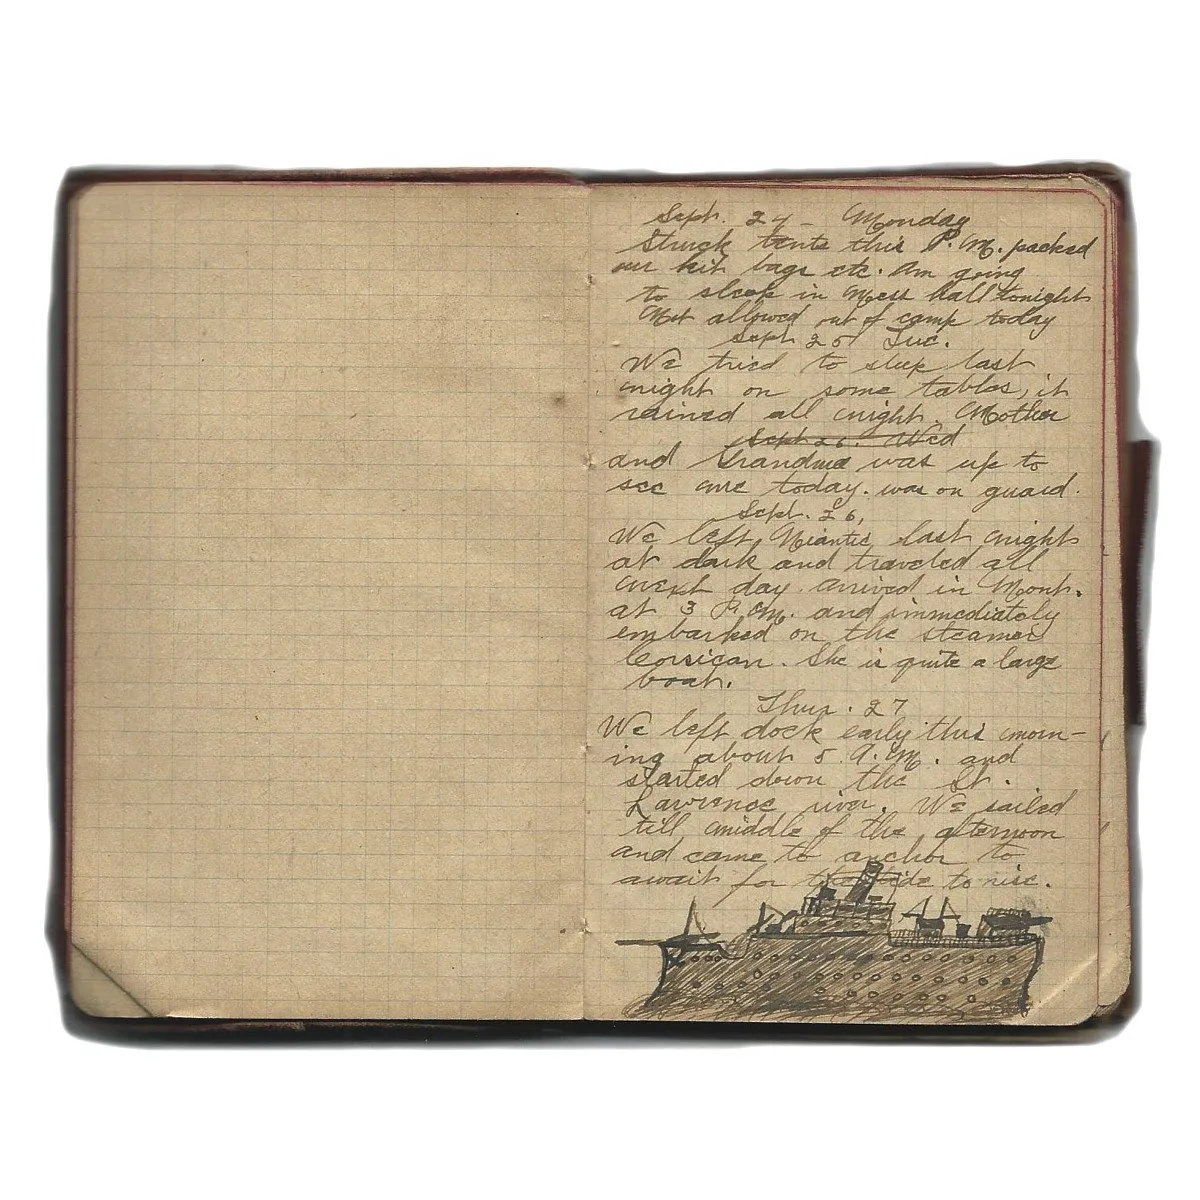 Sept. 24 - Monday
Struck tents this P.M. packed
our kit bags etc. Am going
to sleep in Mess hall tonight
Not allowed out of camp today
Sept 25 Tue.
We tried to sleep last
night on some tables, it
rained all night. Mother
Sept 26. Wed
and Grandma was up to
see me today. was on guard.
Sept. 26,
We left Niantic last night
at dark and traveled all
next day arrived in Mont.
at 3 P.M. and immediately
embarked on the steamer
Corsican. She is quite a large
boat.
Thur. 27
We left dock early this morn-
ing about 5 A.M. and
started down the St.
Lawrence river. We sailed
till middle of the afternoon
and came to anchor to
await for the tide to rise.